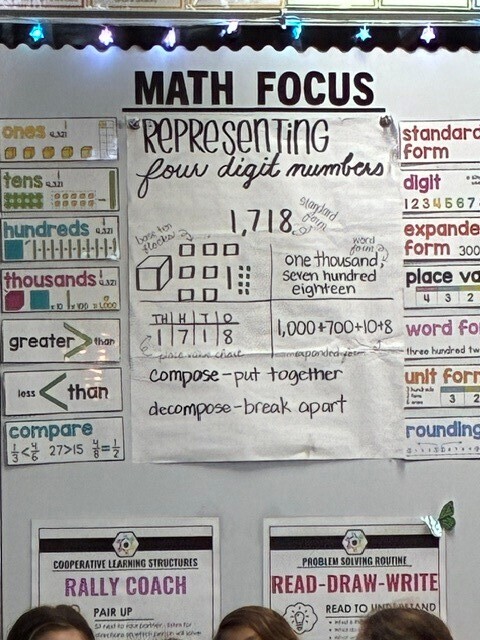 MATH FOCUS
REPRESENTING
four digit numbers
1,718
standard form
base ten blocks
word form
one thousand,
seven hundred
eighteen
TH H T O
1 7 1 8
place value chart
1,000+700+10+8
expanded form
compose-put together
decompose-break apart
ones 4,321
tens 4,321
hundreds 4,321
thousands 4,321
greater > than
less < than
compare
1/3 < 4/6 27>15 4/8 = 1/2
standard
form
digit
1 2 3 4 5 6 7
expande
form 300
place va
4 3 2
word fo
three hundred tw
unit form
3 2
rounding
COOPERATIVE LEARNING STRUCTURES
RALLY COACH
PAIR UP
PROBLEM SOLVING ROUTINE
READ-DRAW-WRITE
READ TO UNDERSTAND